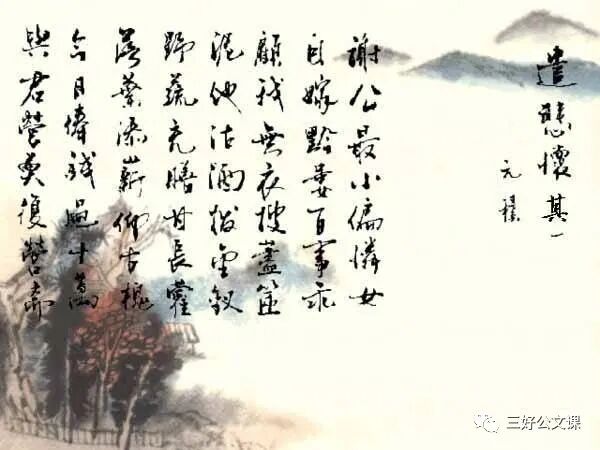 遣悲懷其一
元稹
謝公最小偏憐女
自嫁黔婁百事乖
顧我無衣搜藎篋
泥他沽酒拔金釵
野蔬充膳甘長藿
落葉添薪仰古槐
今日俸錢過十萬
與君營奠復營齋
三好公文课